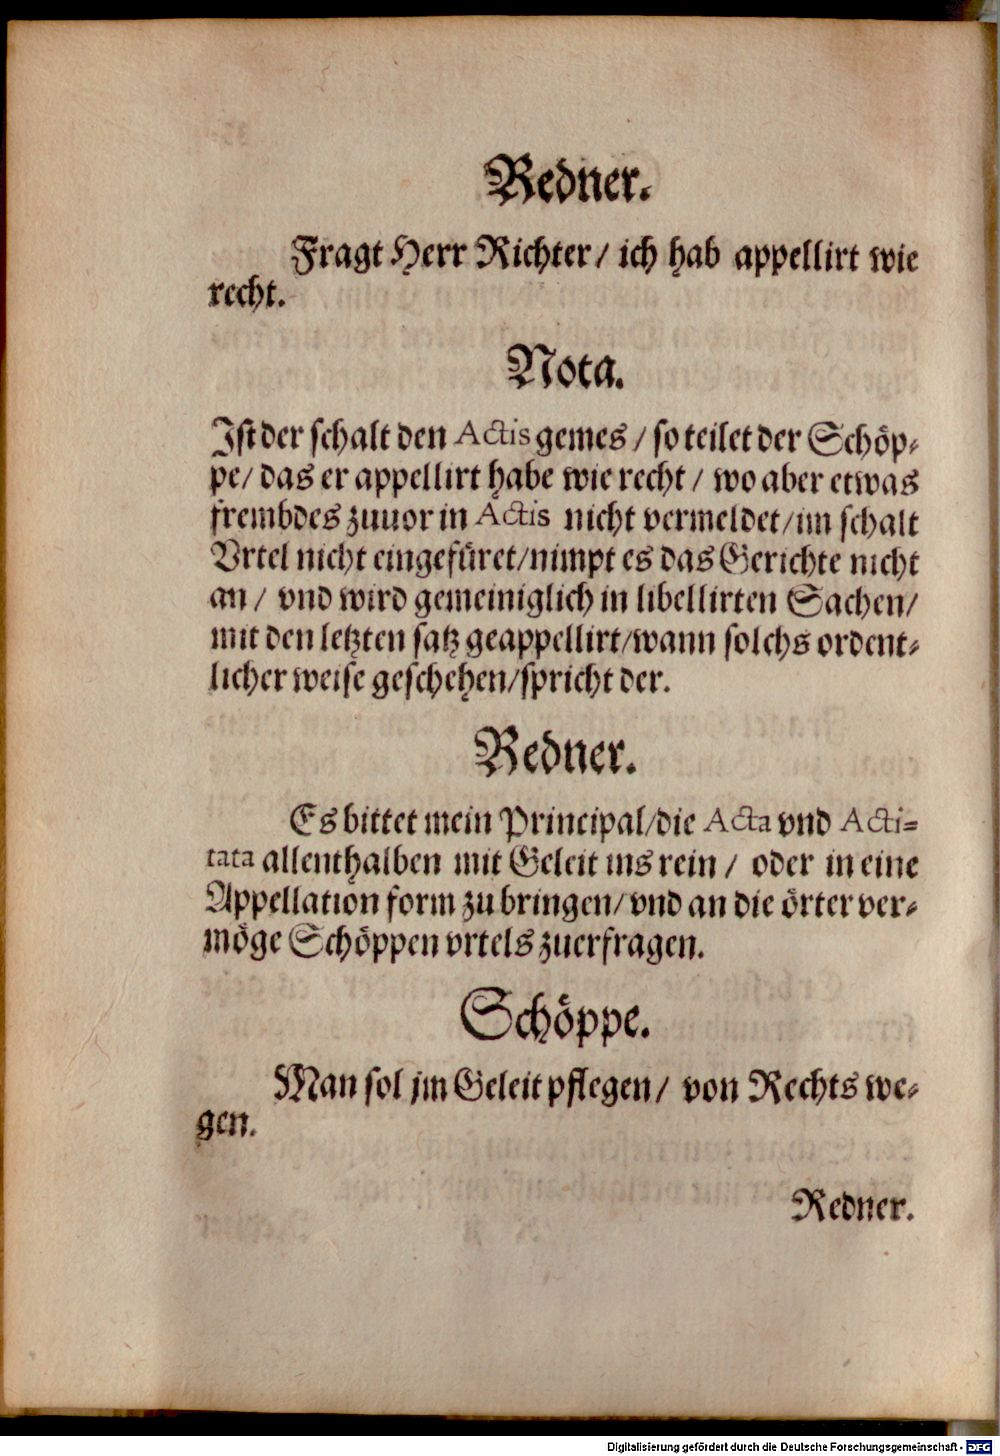 Redner.
Fragt Herr Richter/ ich hab appellirt wie
recht.
Nota.
Ist der schalt den Actis gemes / so teilet der Schöp-
pe/ das er appellirt habe wie recht / wo aber etwas
frembdes zuuor in Actis nicht vermeldet/im schalt
Vrtel nicht eingefüret/nimpt es das Gerichte nicht
an / vnd wird gemeiniglich in libellirten Sachen/
mit den letzten satz geappellirt/wann solchs ordent-
licher weise geschehen/spricht der.
Redner.
Es bittet mein Principal/die Acta vnd Acti-
tata allenthalben mit Geleit ins rein / oder in eine
Appellation form zu bringen/vnd an die örter ver-
möge Schöppen vrtels zuerfragen.
Schöppe.
Man sol jm Geleit pflegen/ von Rechts we-
gen.
Redner.
Digitalisierung gefördert durch die Deutsche Forschungsgemeinschaft - DFG